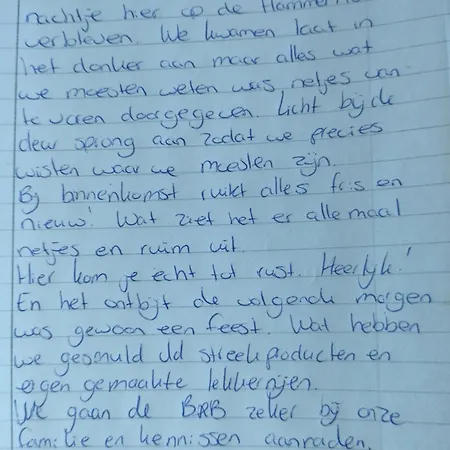 nachtje hier op de Hamme
verbleven. We kwamen laat in
het donker aan maar alles wat
we moesten weten was netjes van
te voren doorgegeven. Licht bij de
deur sprong aan zodat we precies
wisten waar we moesten zijn.
Bij binnenkomst ruikt alles fris en
nieuw! Wat ziet het er allemaal
netjes en ruim uit.
Hier kom je echt tot rust. Heerlijk!
En het ontbijt de volgende morgen
was gewoon een feest. Wat hebben
we gesmuld vd streekproducten en
eigen gemaakte lekkernijen.
We gaan de B&B zeker bij onze
familie en kennissen aanraden.